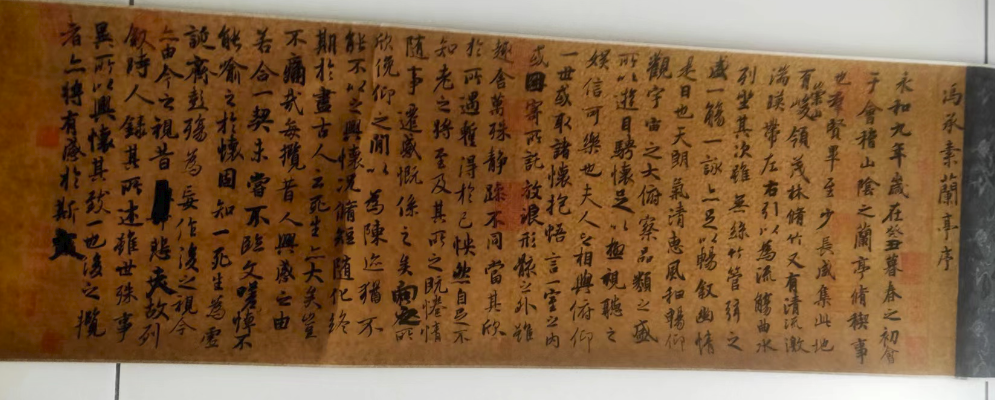 馮承素蘭亭序
永和九年歲在癸丑暮春之初會
于會稽山陰之蘭亭脩稧事
也羣賢畢至少長咸集此地
有崇山峻領茂林脩竹又有清流激
湍暎帶左右引以為流觴曲水
列坐其次雖無絲竹管弦之
盛一觴一詠亦足以暢敘幽情
是日也天朗氣清惠風和暢仰
觀宇宙之大俯察品類之盛
所以遊目騁懷足以極視聽之
娛信可樂也夫人之相與俯仰
一世或取諸懷抱悟言一室之內
或因寄所託放浪形骸之外雖
趣舍萬殊靜躁不同當其欣
於所遇暫得於己怏然自足不
知老之將至及其所之既惓情
隨事遷感慨係之矣向之所
欣俛仰之閒以為陳迹猶不
能不以之興懷況脩短隨化終
期於盡古人云死生亦大矣豈
不痛哉每攬昔人興感之由
若合一契未嘗不臨文嗟悼不
能喻之於懷固知一死生為虛
誕齊彭殤為妄作後之視今
亦由今之視昔悲夫故列
敘時人錄其所述雖世殊事
異所以興懷其致一也後之攬
者亦將有感於斯文